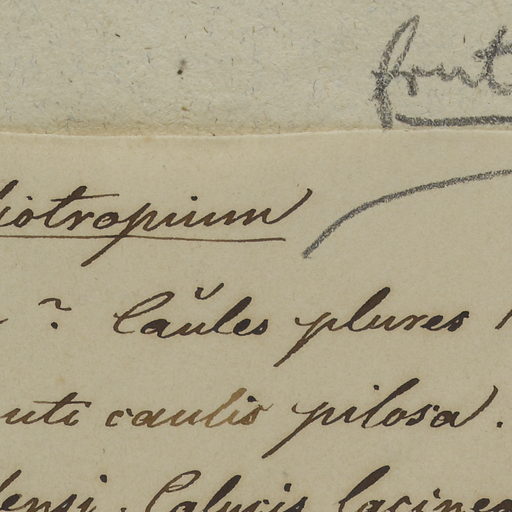 frut
iotropium
? Caŭles plures
uti caulis pilosa.
densi. Calycis lacinea